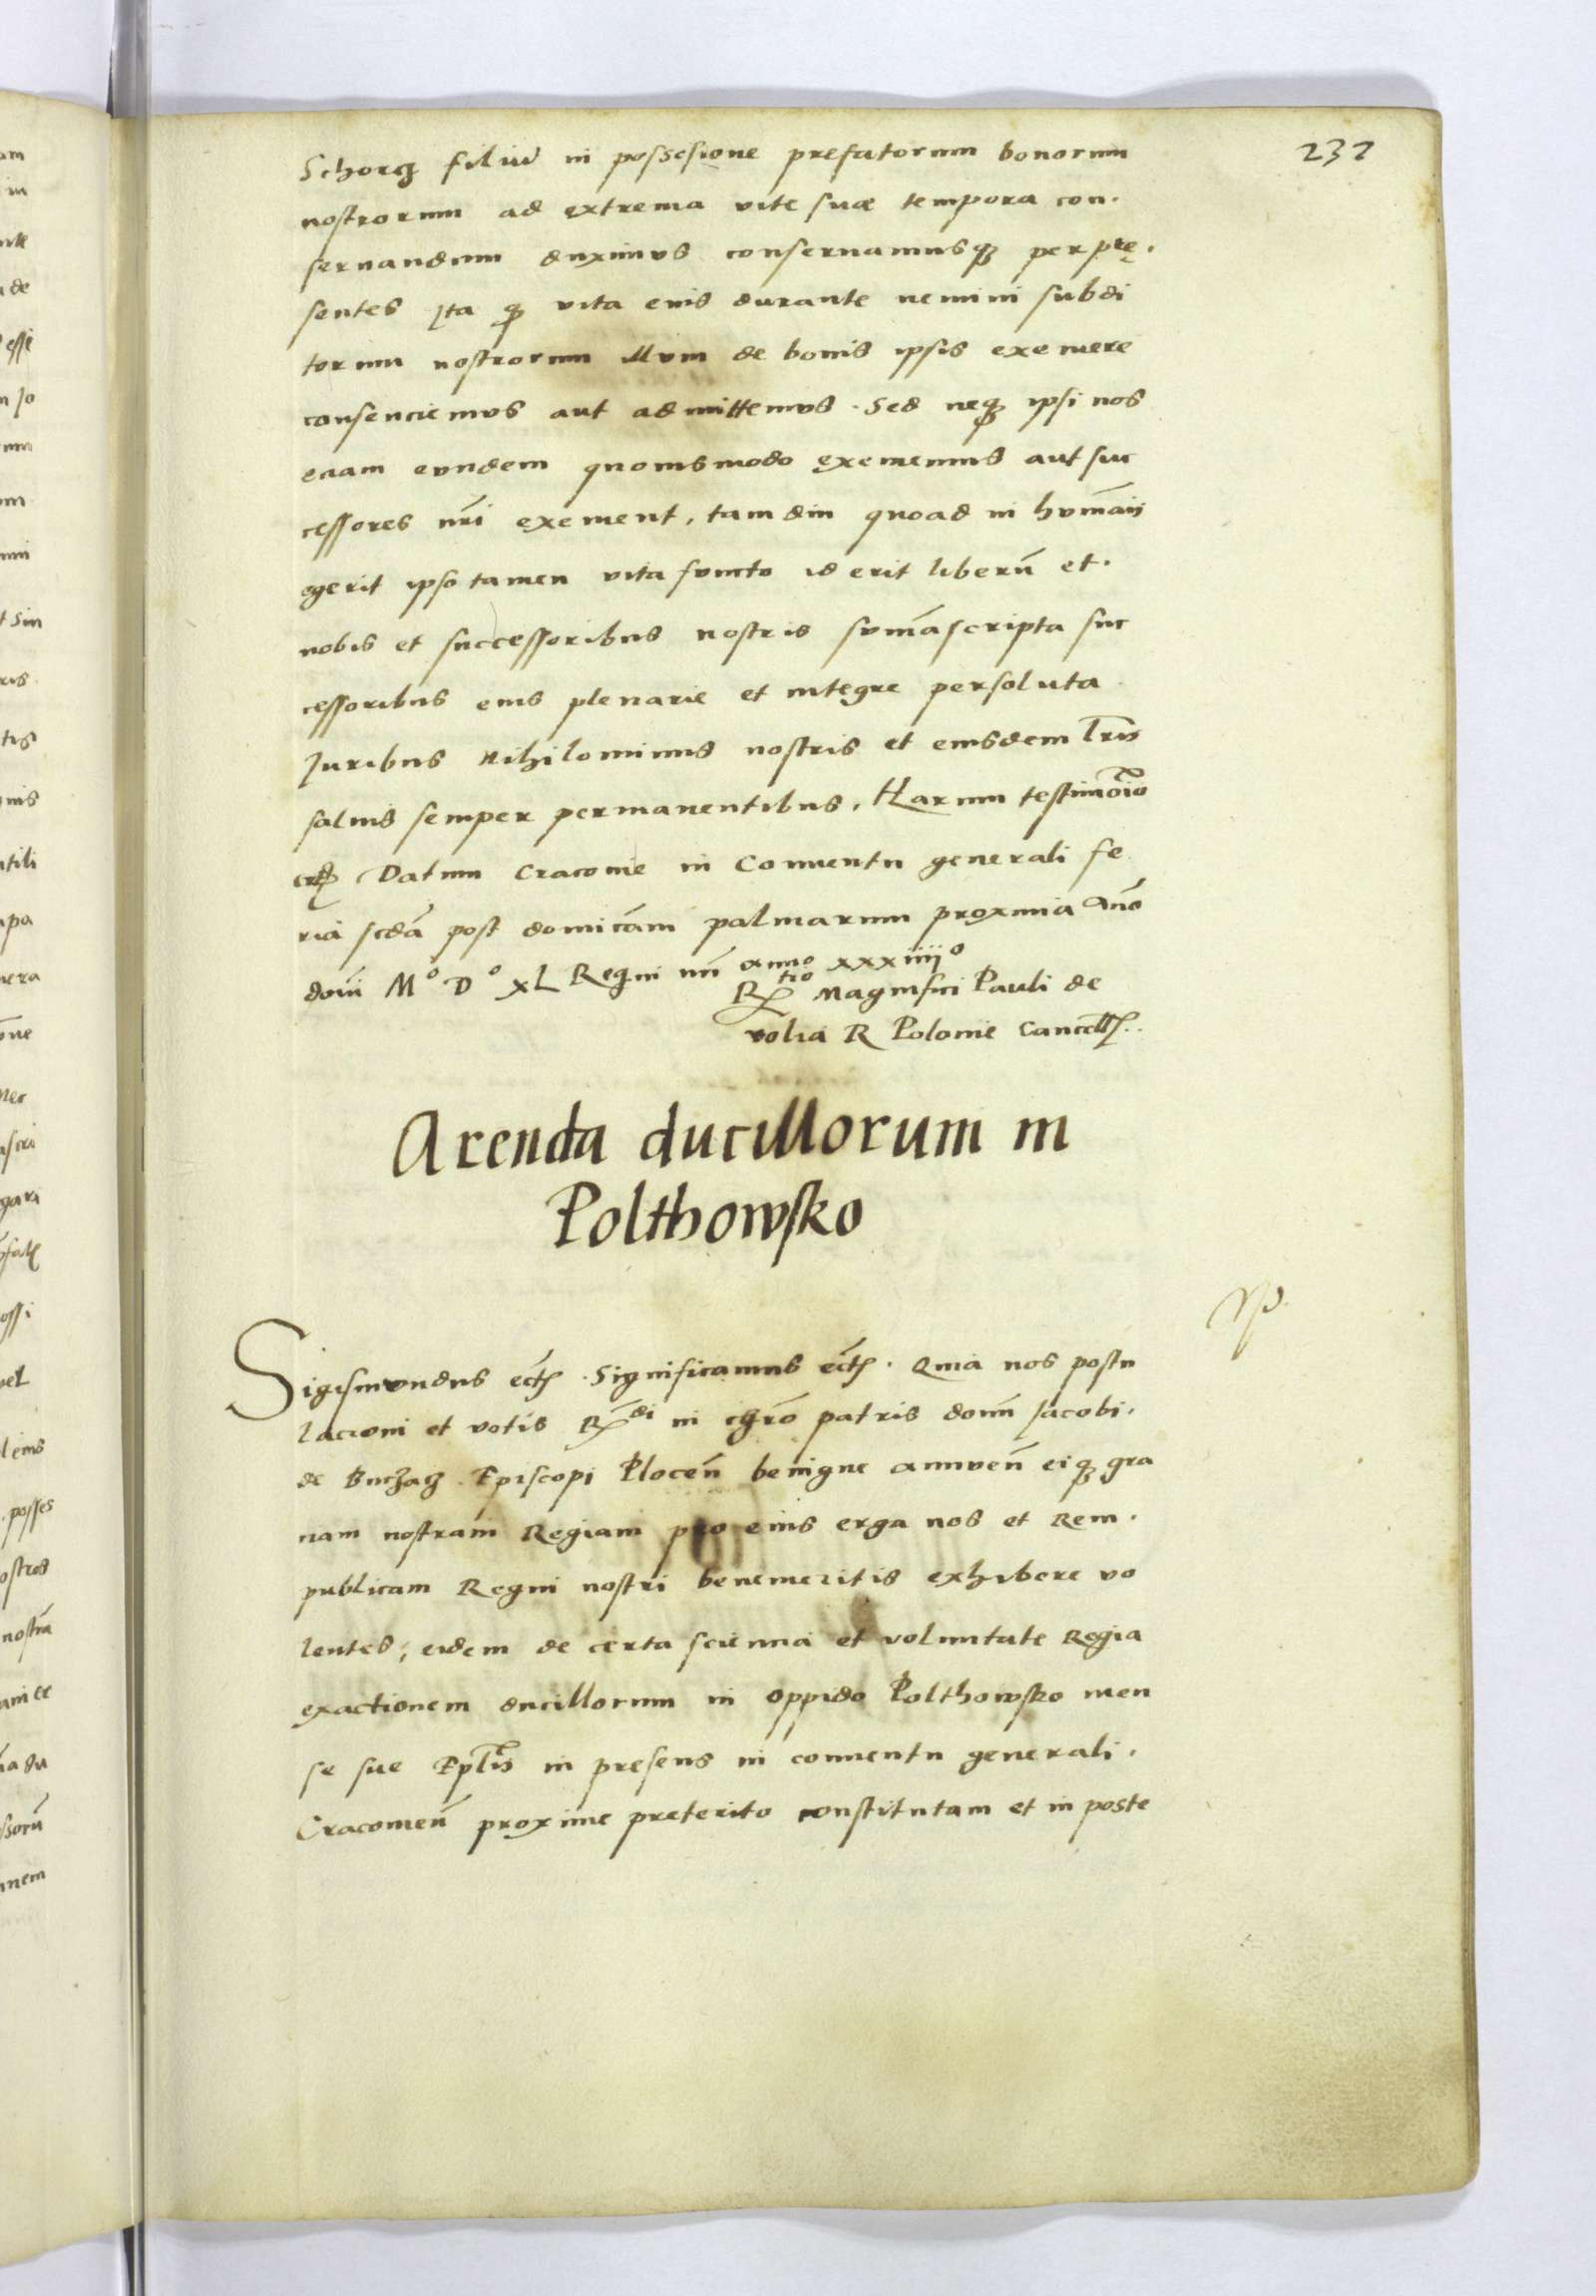 232
Schorcz filiu in possesione prefatorum bonorum
nostrorum ad extrema vite suæ tempora con.
seruandum duximus conseruamusq3 per prę.
sentes Ita q vita eius durante nemini subdi
torum nostrorum illum de bonis ipsis exemere
consenciemus aut admittemus. Sed neq3 ipsi nos
eciam eundem quouismodo exememus aut suc
cessores nri exement, tamdiu quoad in humāis
egerit ipso tamen vita functo id erit liberū et.
nobis et successoribus nostris sumā scripta suc
cessoribus eius plenarie et integre persoluta
Juribus nihilominus nostris et eiusdem lris
saluis semper permanentibus. Harum testimōio
Datum Cracouie in Conuentu generali fe
ria scdā post domicam palmarum proxima año
domi M° D° XL Regni nri anno xxxiiii°
Rtio Magnifici Pauli de
volia R Polonie Cancell.
Arenda ducillorum in
Polthowsko
Sigismundus ect. Significamus ect. Quia nos postu
lacioni et votis Rdi in chro patris domi Jacobi.
de Buczacz Episcopi Plocen benigne annuen eiq3 gra
ciam nostram Regiam pro eius erga nos et Rem.
publicam Regni nostri benemeritis exhibere vo
lentes, eidem de certa sciencia et voluntate Regia
exactionem ducillorum in oppido Polthowsko men
se sue Eplis in presens in conuentu generali.
Cracouien proxime preterito constitutam et in poste